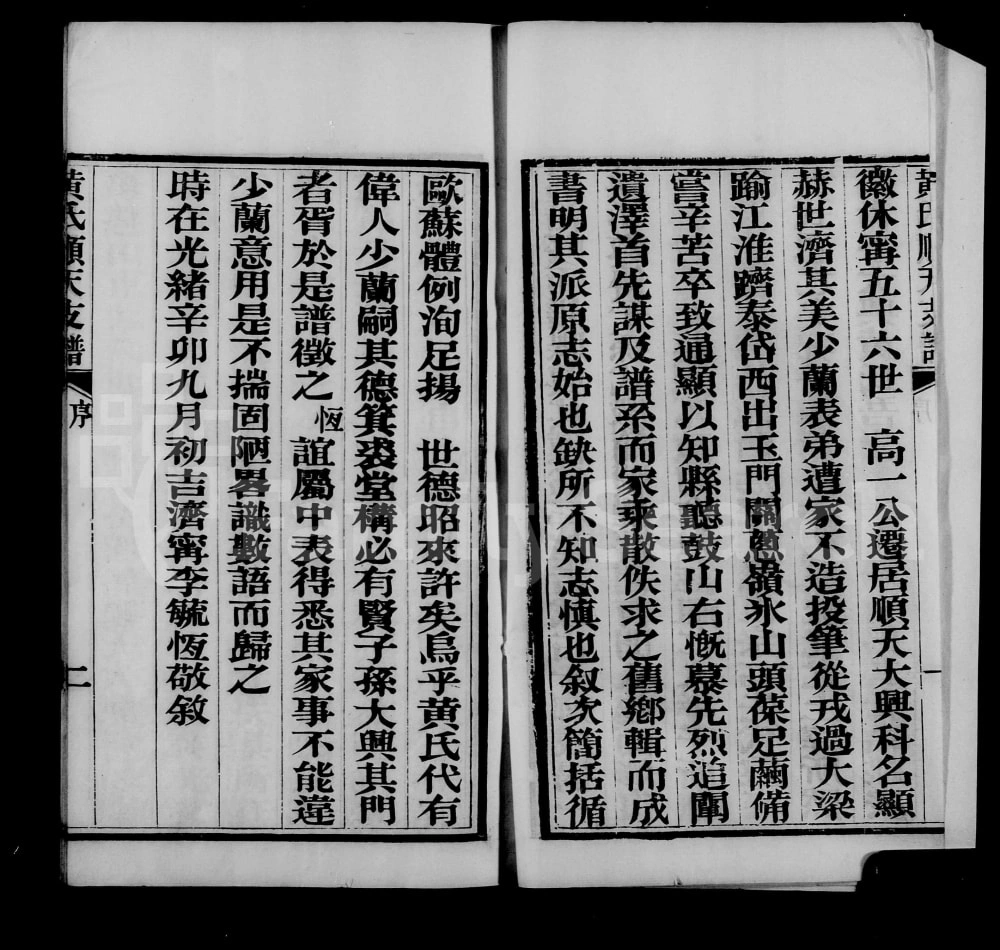 黃氏順天支譜
一
徽休甯五十六世　高一公遷居順天大興科名顯
赫世濟其美少蘭表弟遭家不造投筆從戎過大梁
踰江淮躋泰岱西出玉門關蔥嶺冰山頭葆足繭備
嘗辛苦卒致通顯以知縣聽鼓山右慨慕先烈追闡
遺澤首先謀及譜系而家乘散佚求之舊鄉輯而成
書明其派原志始也缺所不知志慎也叙次簡括循
歐蘇體例洵足揚　世德昭來許矣烏乎黃氏代有
偉人少蘭嗣其德箕裘堂構必有賢子孫大興其門
者胥於是譜徵之恆誼屬中表得悉其家事不能違
少蘭意用是不揣固陋畧識數語而歸之
時在光緒辛卯九月初吉濟甯李毓恆敬敘
黃氏順天支譜
序
二